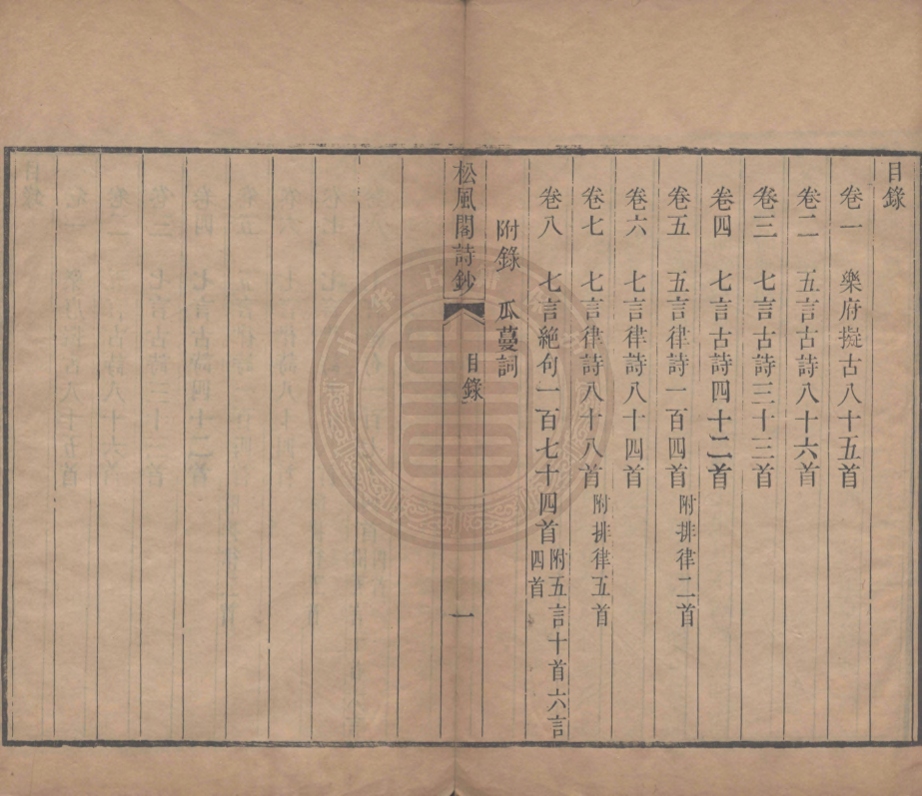 目錄
卷一 樂府擬古八十五首
卷二 五言古詩八十六首
卷三 七言古詩三十三首
卷四 七言古詩四十二首
卷五 五言律詩一百四首附排律二首
卷六 七言律詩八十四首
卷七 七言律詩八十八首附排律五首
卷八 七言絕句一百七十四首附五言十首六言四首
附錄 瓜蔓詞
松風閣詩鈔 目錄 一